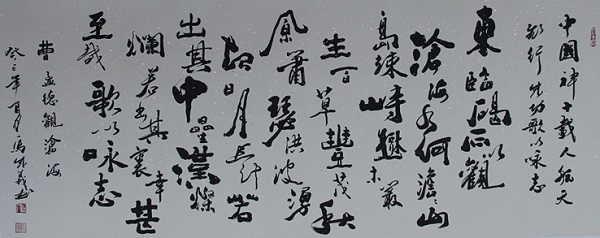 中國神十載人航天
飛行成功歌以咏志
東臨碣石以觀
滄海水何澹々山
島竦峙樹木叢
生百草豐茂秋
風蕭瑟洪波湧
起日月之行若
出其中星漢燦
爛若出其裏幸甚
至哉歌以咏志
曹孟德觀滄海
癸巳年